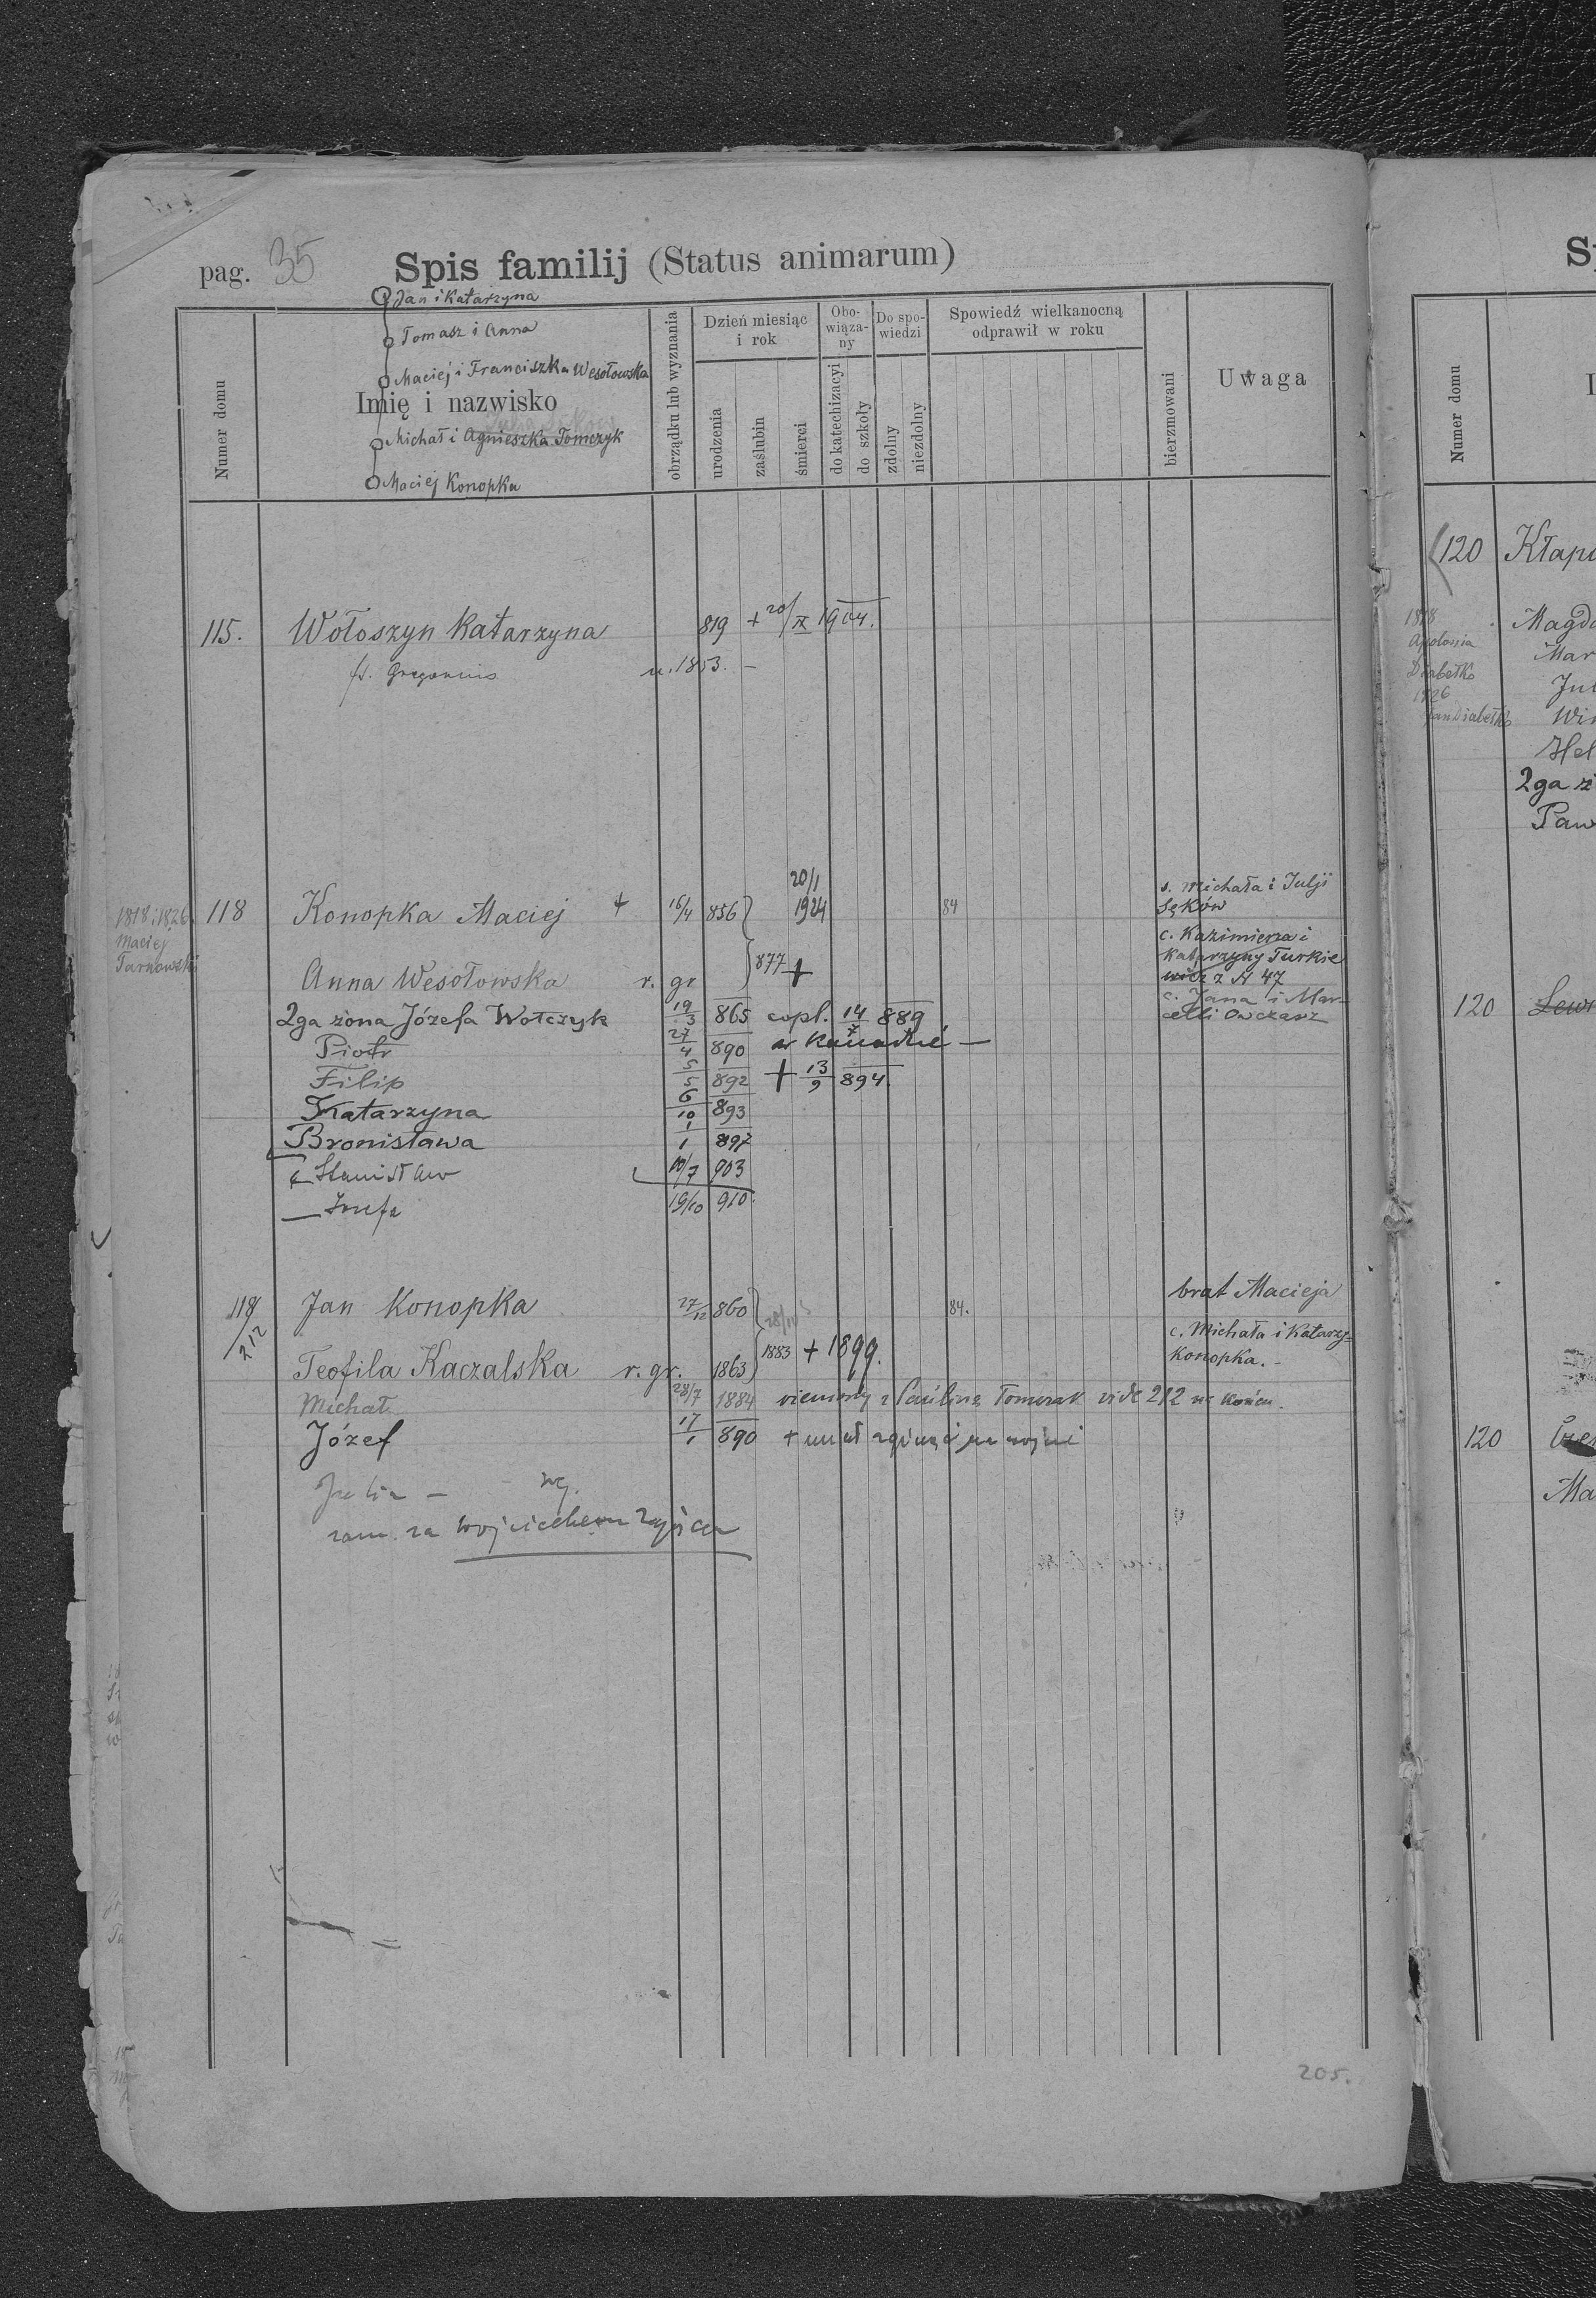 pag. 35 Spis familij (Status animarum)
Jan i Katarzyna
Tomasz i Anna
Maciej i Franciszka Wesołowska
Michał i Agnieszka Tomczyk
Maciej Konopka
Numer domu
Imię i nazwisko
obrządku lub wyznania
Dzień miesiąc i rok
urodzenia
zaślubin
śmierci
Obo-wiąza-ny
do katechizacyi
do szkoły
Do spo-wiedzi
zdolny
niezdolny
Spowiedź wielkanocną odprawił w roku
bierzmowani
Uwaga
115. Wołoszyn Katarzyna 819 + 20/IX 1904.
u. 1853. –
1818 i 1826
Maciej
Tarnowski
118 Konopka Maciej + 16/4 856 20/1 1924 84 s. Michała i Julji Sęków
Anna Wesołowska r. gr 877 + c. Kazimierza i Katarzyny Turkiewicz z N 47
2ga żona Józefa Wołczyk 19/3 865 copl. 14/7 889 c. Jana i Marcelli Owczarz
Piotr 27/4 890 w Kanadzie —
Filip 5/5 892 + 13/9 894.
Katarzyna 6/10 893
Bronisława 1/1 897
Stanisław 10/7 903
Józefa 19/10 910.
118/212 Jan Konopka 27/12 860 84. brat Macieja
Teofila Kaczalska r. gr. 1863 1883 + 1899. c. Michała i Katarzy= Konopka. –
Michał 28/7 1884 z Pauliną Tomczak vide 212 na końcu.
Józef 17/1 890 + miał zginąć na wojnie
Julia –
zam. za Wojciechem Zając
205.
S
Numer domu
I
120 Kłap
1818
Apolonia
Diabełko
1826
Jan Diabełko
Magd
Mar
Jul
Win
Hel
2ga ż
Paw
120 Lew
120
Ma